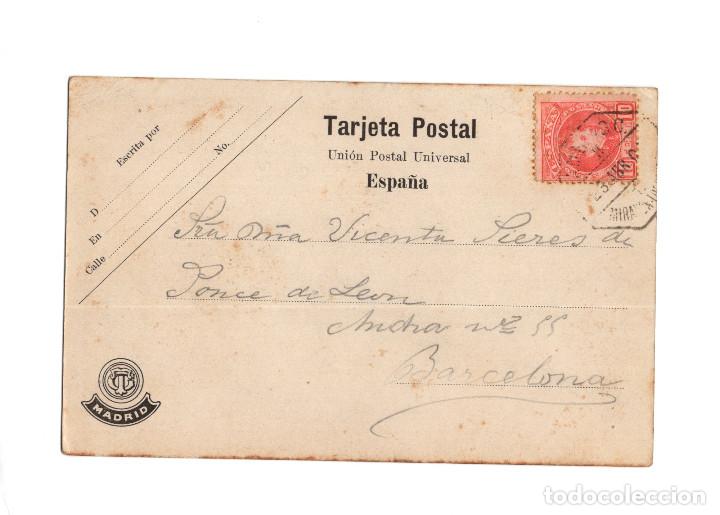 Escrita por
D
No.
En
Calle
Tarjeta Postal
Unión Postal Universal
España
Sra Dña Vicenta Sieres de
Ponce de Leon
55
Barcelona
MADRID
todocoleccion